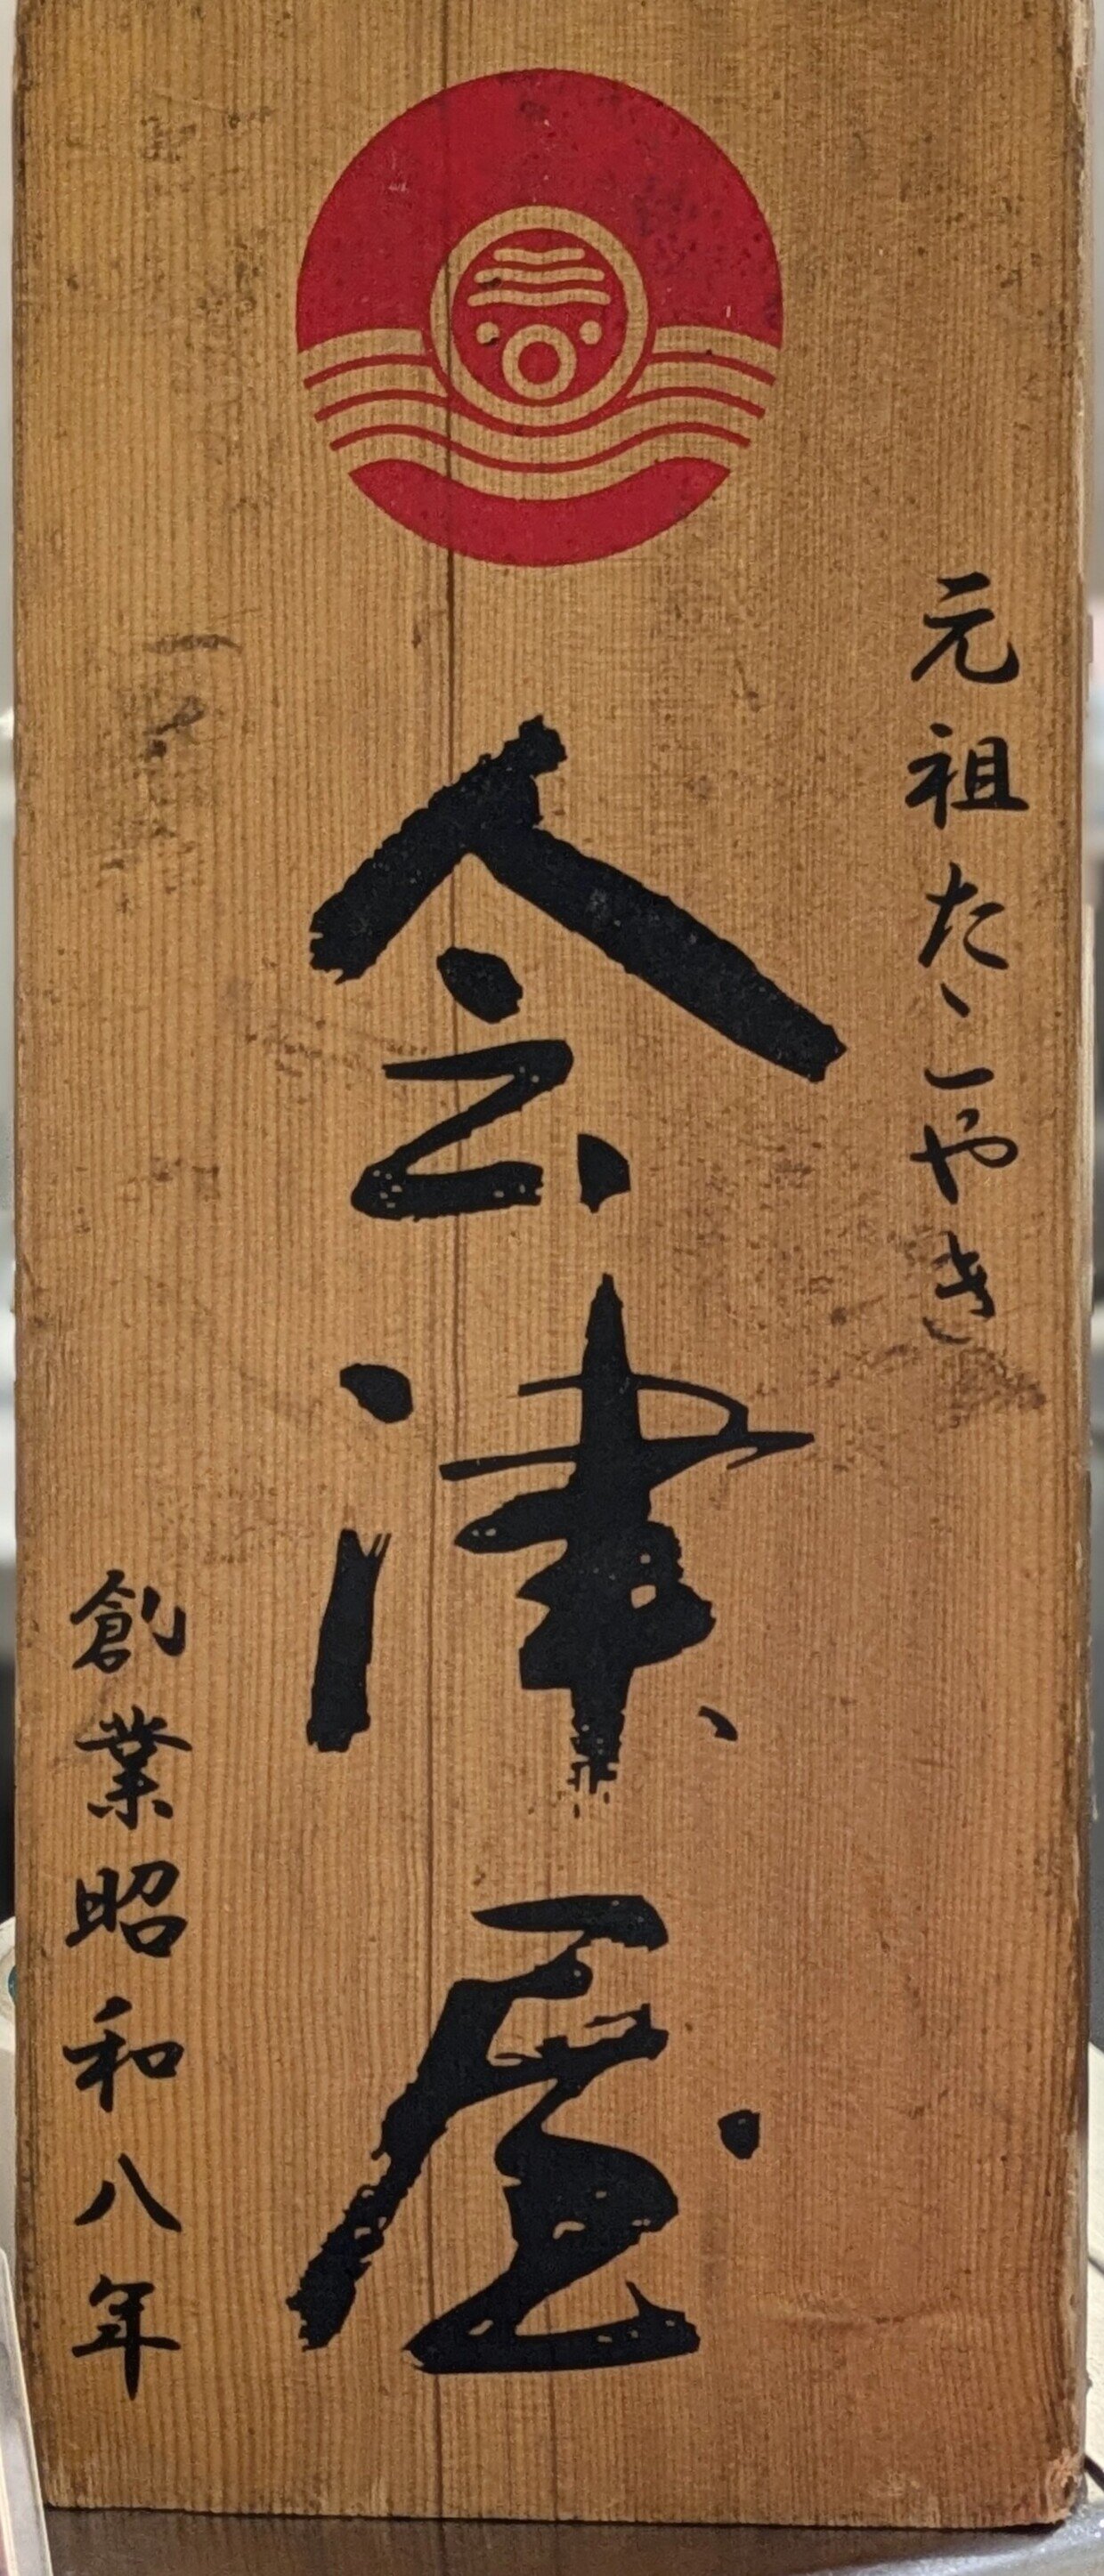 元祖たこやき
会津屋
創業昭和八年